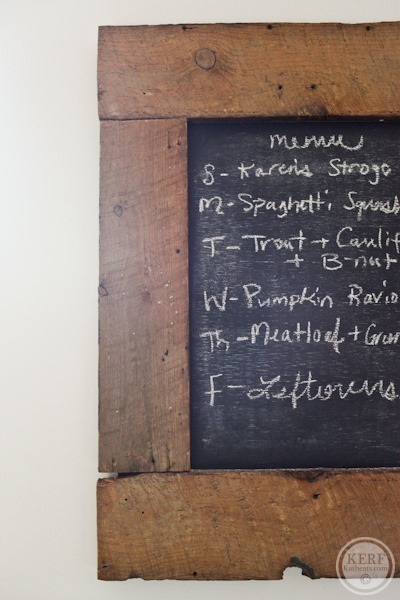 menu
S- Karen's Stroga
M- Spaghetti Squash
T- Trout + Caulif
+ B-nut
W- Pumpkin Ravio
Th- Meatloaf + Gre
F- Leftovers
KERF
Katheats.com
©